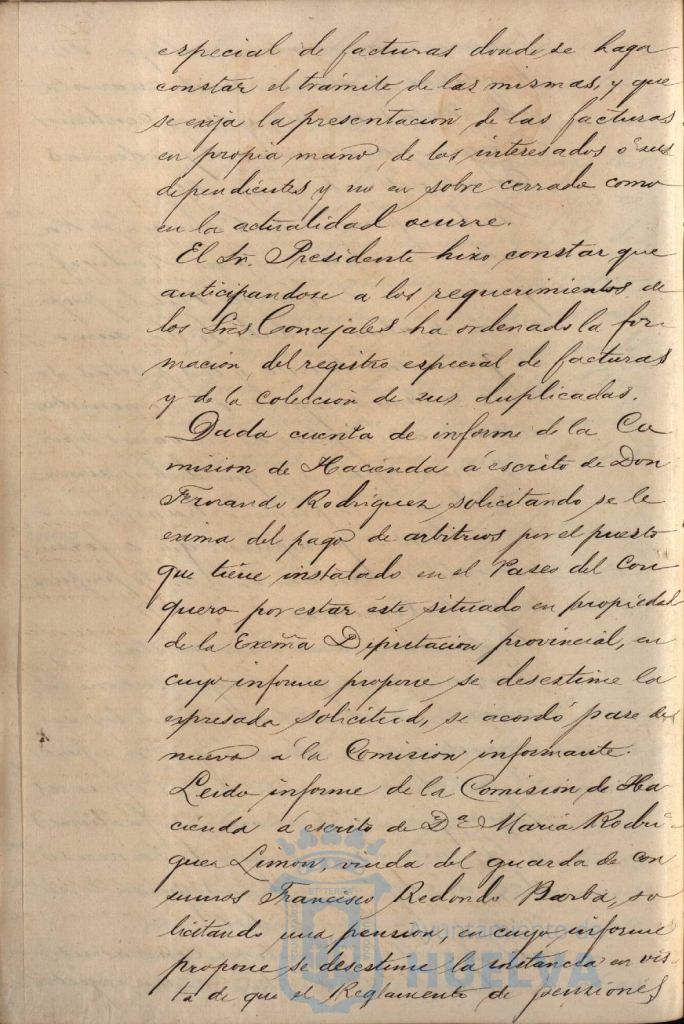 especial de facturas donde se haga
constar el trámite de las mismas, y que
se exija la presentación de las facturas
en propia mano, de los interesados ó sus
dependientes y no en sobre cerrado como
en la actualidad ocurre.
El Sr. Presidente hizo constar que
anticipandose á los requerimientos de
los Sres. Concejales ha ordenado la for-
mación del registro especial de facturas
y de la colección de sus duplicadas.
Dada cuenta de informe de la Co
mision de Hacienda á escrito de Don
Fernando Rodríguez solicitando se le
exima del pago de arbitrios por el puesto
que tiene instalado en el Paseo del Con
quero por estar éste situado en propiedad
de la Excma Diputacion provincial, en
cuyo informe propone se desestime la
expresada solicitud, se acordó pase de
nuevo á la Comision informante.
Leido informe de la Comision de Ha
cienda á escrito de Dª Maria Rodri-
guez Limon, viuda del guarda de con
sumos Francisco Redondo Barba, so
licitando una pension, en cuyo informe
propone se desestime la instancia en vis-
ta de que el Reglamento de pensiones
Ayuntamiento de
HUELVA